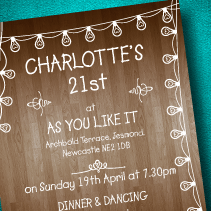 CHARLOTTE'S
21st
at
AS YOU LIKE IT
Archbold Terrace, Jesmond,
Newcastle NE2 1DB
on Sunday 19th April at 7.30pm
DINNER & DANCING